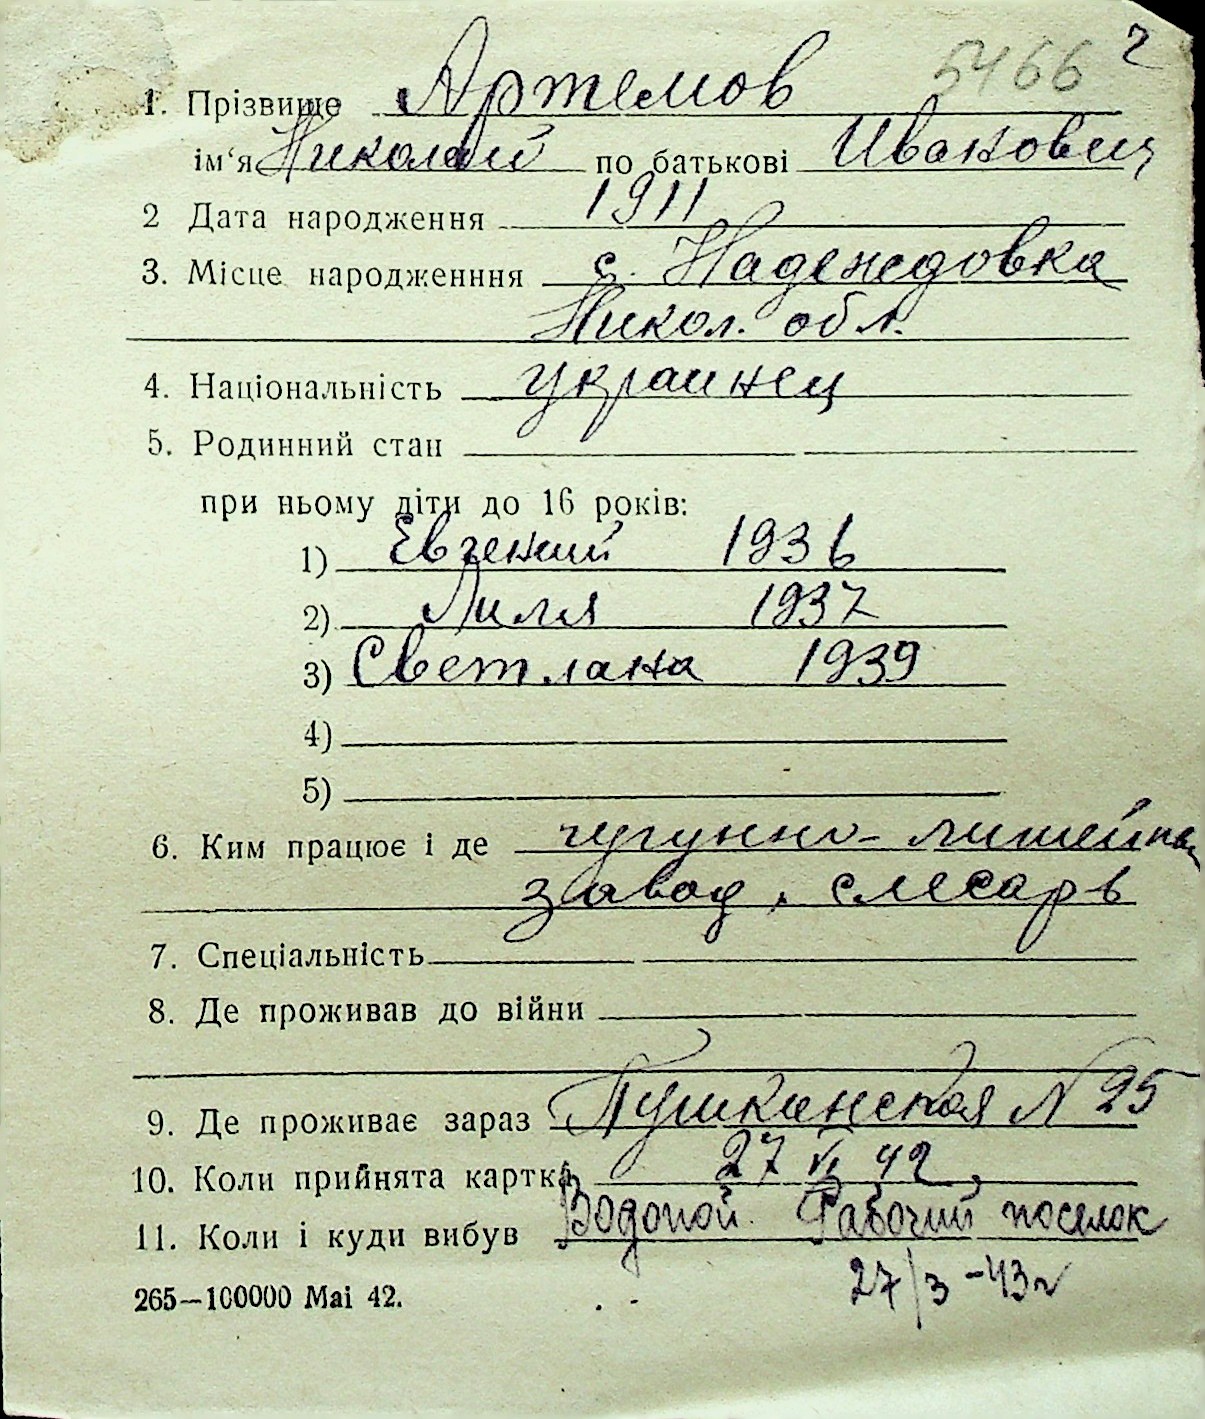 5466 2
1. Прізвище Артемов
ім‘я Николай по батькові Иванович
2 Дата народження 1911
3. Місце народженння с. Надеждовка
Никол. обл.
4. Національність украинец
5. Родинний стан
при ньому діти до 16 років:
1) Евгений 1936
2) Лиля 1937
3) Светлана 1939
4)
5)
6. Ким працює і де чугунно-литейный
завод, слесарь
7. Спеціальність
8. Де проживав до війни
9. Де проживає зараз Пушкинская N 25
10. Коли прийнята картка 27 VI 42,
11. Коли і куди вибув Водопой. Рабочий поселок
265—100000 Mai 42. 27/3 -43г